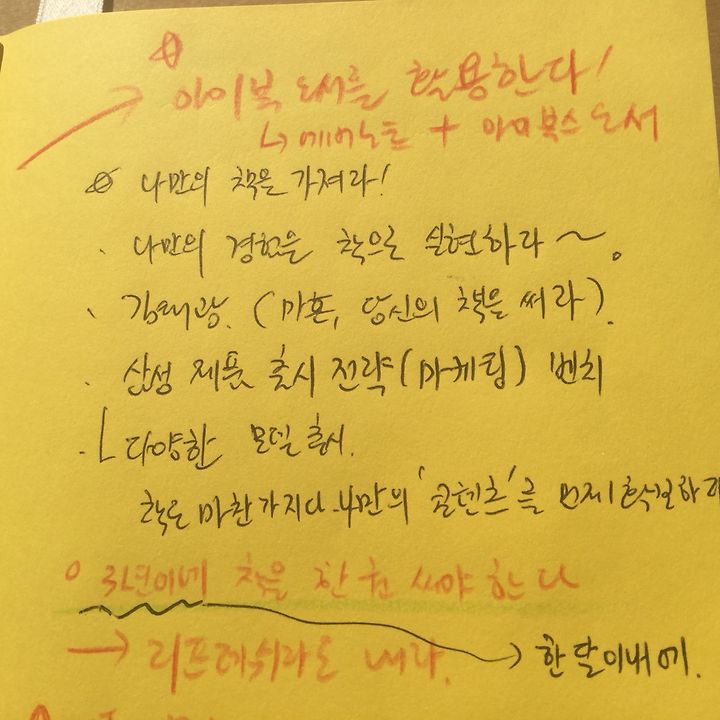 → 아이북 도서를 활용한다!
↳ 에버노트 + 아이북스 도서
나만의 책을 가져라!
· 나만의 경험을 책으로 실현하라 ~。
· 김태광. (마흔, 당신의 책을 써라).
· 삼성 제품 출시 전략(마케팅) 벤치
· └ 다양한 모델 출시.
책도 마찬가지다. 나만의 '콘텐츠'를 먼저 확보하라
○ 3년이내 책을 한 권 써야 한다
→ 리프레쉬라도 내라. → 한달이내에.